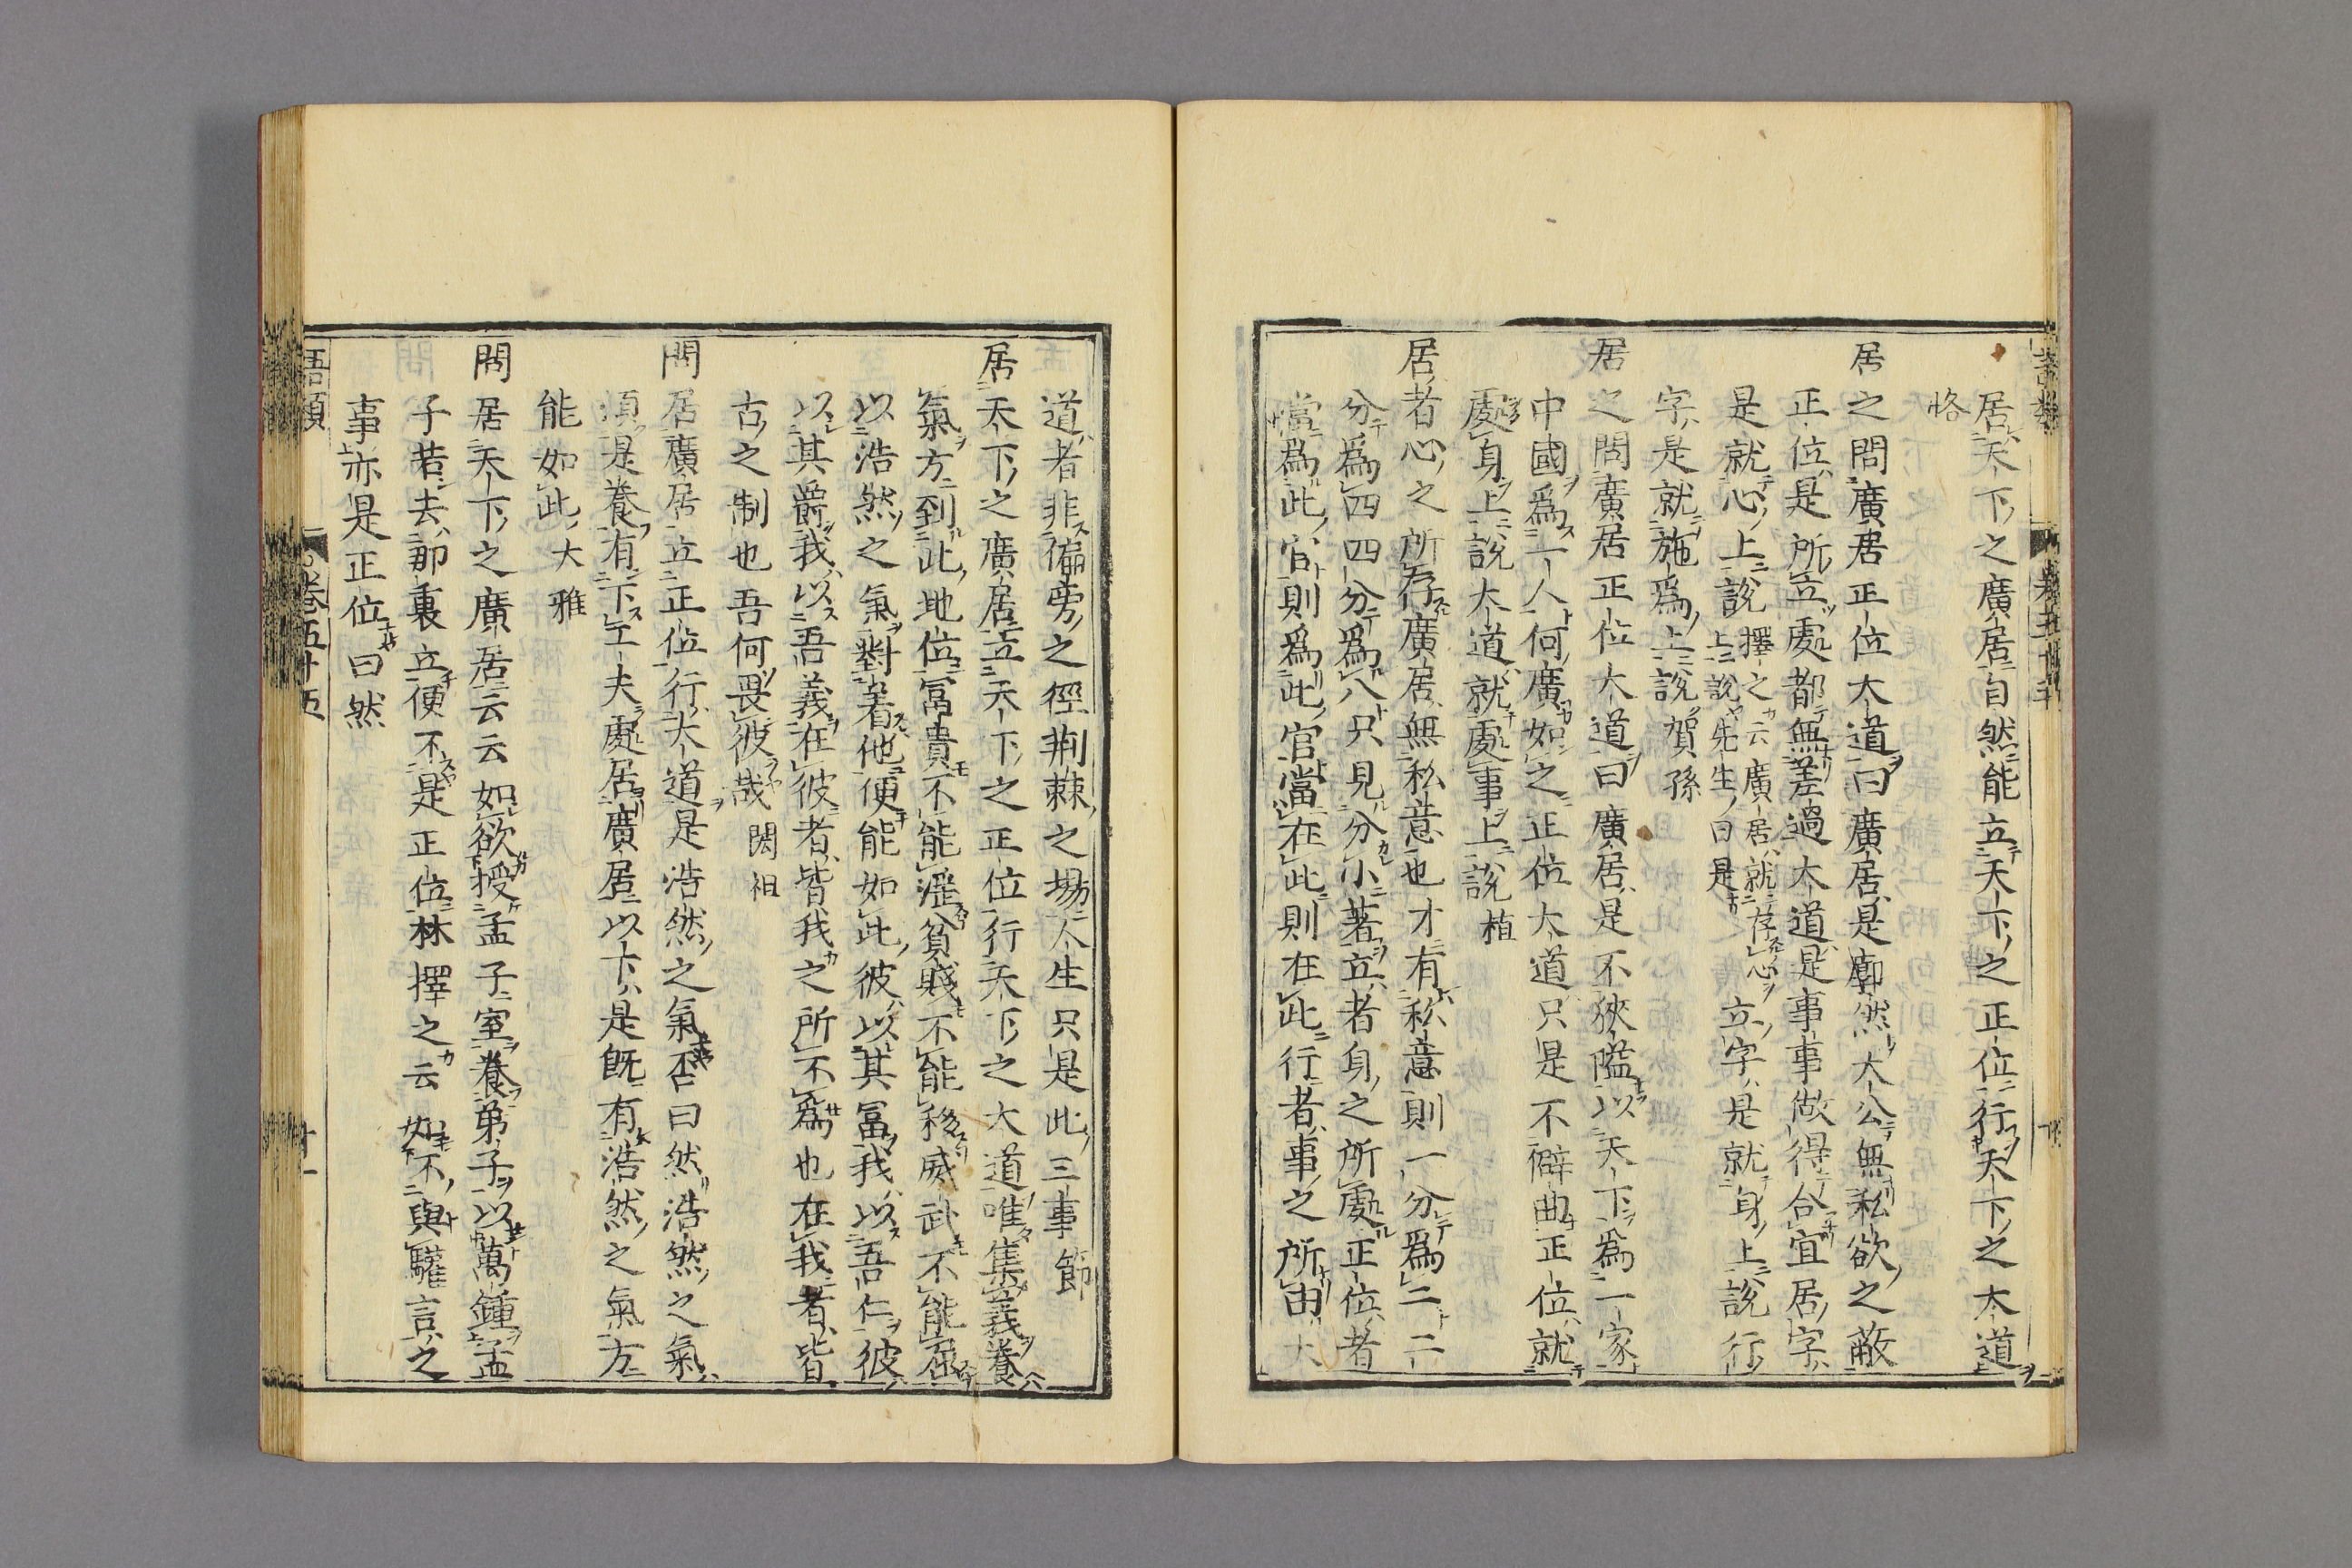 居天下之廣居自然能立天下之正位行天下之大道
恪
居之問廣居正位大道曰廣居是廓然大公無私欲之蔽
正位是所立處都無差過大道是事事做得合宜居字
是就心上說擇之云廣居就存心上說先生曰是立字是就身上說行
字是就施爲上說賀孫
居之問廣居正位大道曰廣居是不狹隘以天下爲一家
中國爲一人何廣如之正位大道只是不僻曲正位就
處身上說大道就處事上說植
居者心之所存廣居無私意也才有私意則一分爲二二
分爲四四分爲八只見分小著立者身之所處正位者
當爲此官則爲此官當在此則在此行者事之所由大
道者非偏旁之徑荆棘之場人生只是此三事節
居天下之廣居立天下之正位行天下之大道唯集義養
氣方到此地位富貴不能淫貧賤不能移威武不能屈
以浩然之氣對著他便能如此彼以其富我以吾仁彼
以其爵我以吾義在彼者皆我之所不爲也在我者皆
古之制也吾何畏彼哉閎祖
問居廣居立正位行大道是浩然之氣否曰然浩然之氣
須是養有下工夫處居廣居以下是既有浩然之氣方
能如此大雅
問居天下之廣居云云如欲授孟子室養弟子以萬鍾孟
子若去那裏立便不是正位林擇之云如不與驩言之
事亦是正位曰然
語類
卷五十五
十一